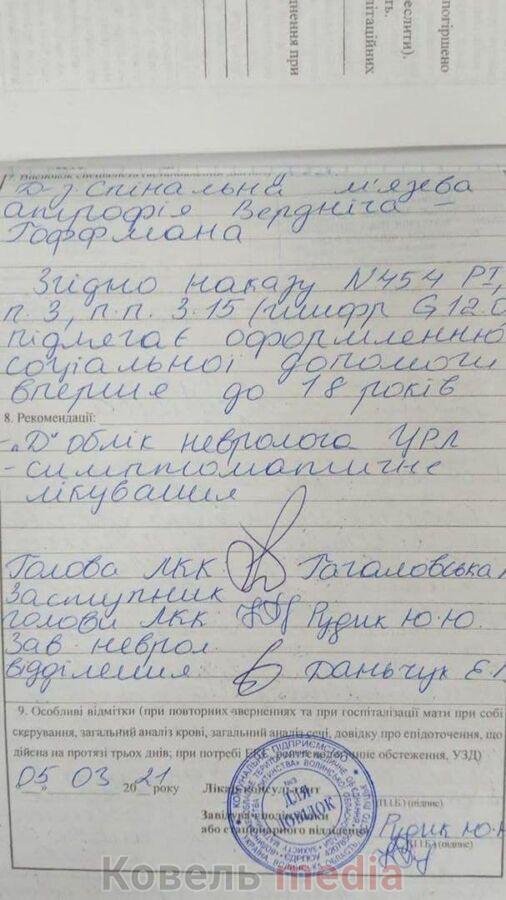 погіршено
еслити).
сть.
літаційних
днення при
Д-з Спінальна м'язева
атрофія Вердніга –
Гоффмана
Згідно наказу N454 РІ,
п. 3, п.п. 3.15 (шифр G 12.0
підлягає оформленню
соціальної допомоги
вперше до 18 років
8. Рекомендації:
- "Д" облік невролога ЦРЛ
- симптоматичне
лікування
Голова ЛКК Гагаловська
Заступник
голови ЛКК Рудик Ю.Ю.
Зав неврол.
відділення Даньчук Є.
9. Особливі відмітки (при повторних звернeннях та при госпіталізації мати при собі
скерування, загальний аналіз крові, загальний аналіз сечі, довідку про епідоточення, що
дійсна на протязі трьох днів; при потребі обстеження, УЗД)
05 03 2021 року Лікар-консультант
(П.І.Б.) (підпис)
Завідувач
або стаціонарного відділення Рудик Ю.Ю.
(П.І.Б.) (підпис)
КОМУНАЛЬНЕ ПІДПРИЄМСТВО
ДЛЯ
ДОВІДОК
Ковель media